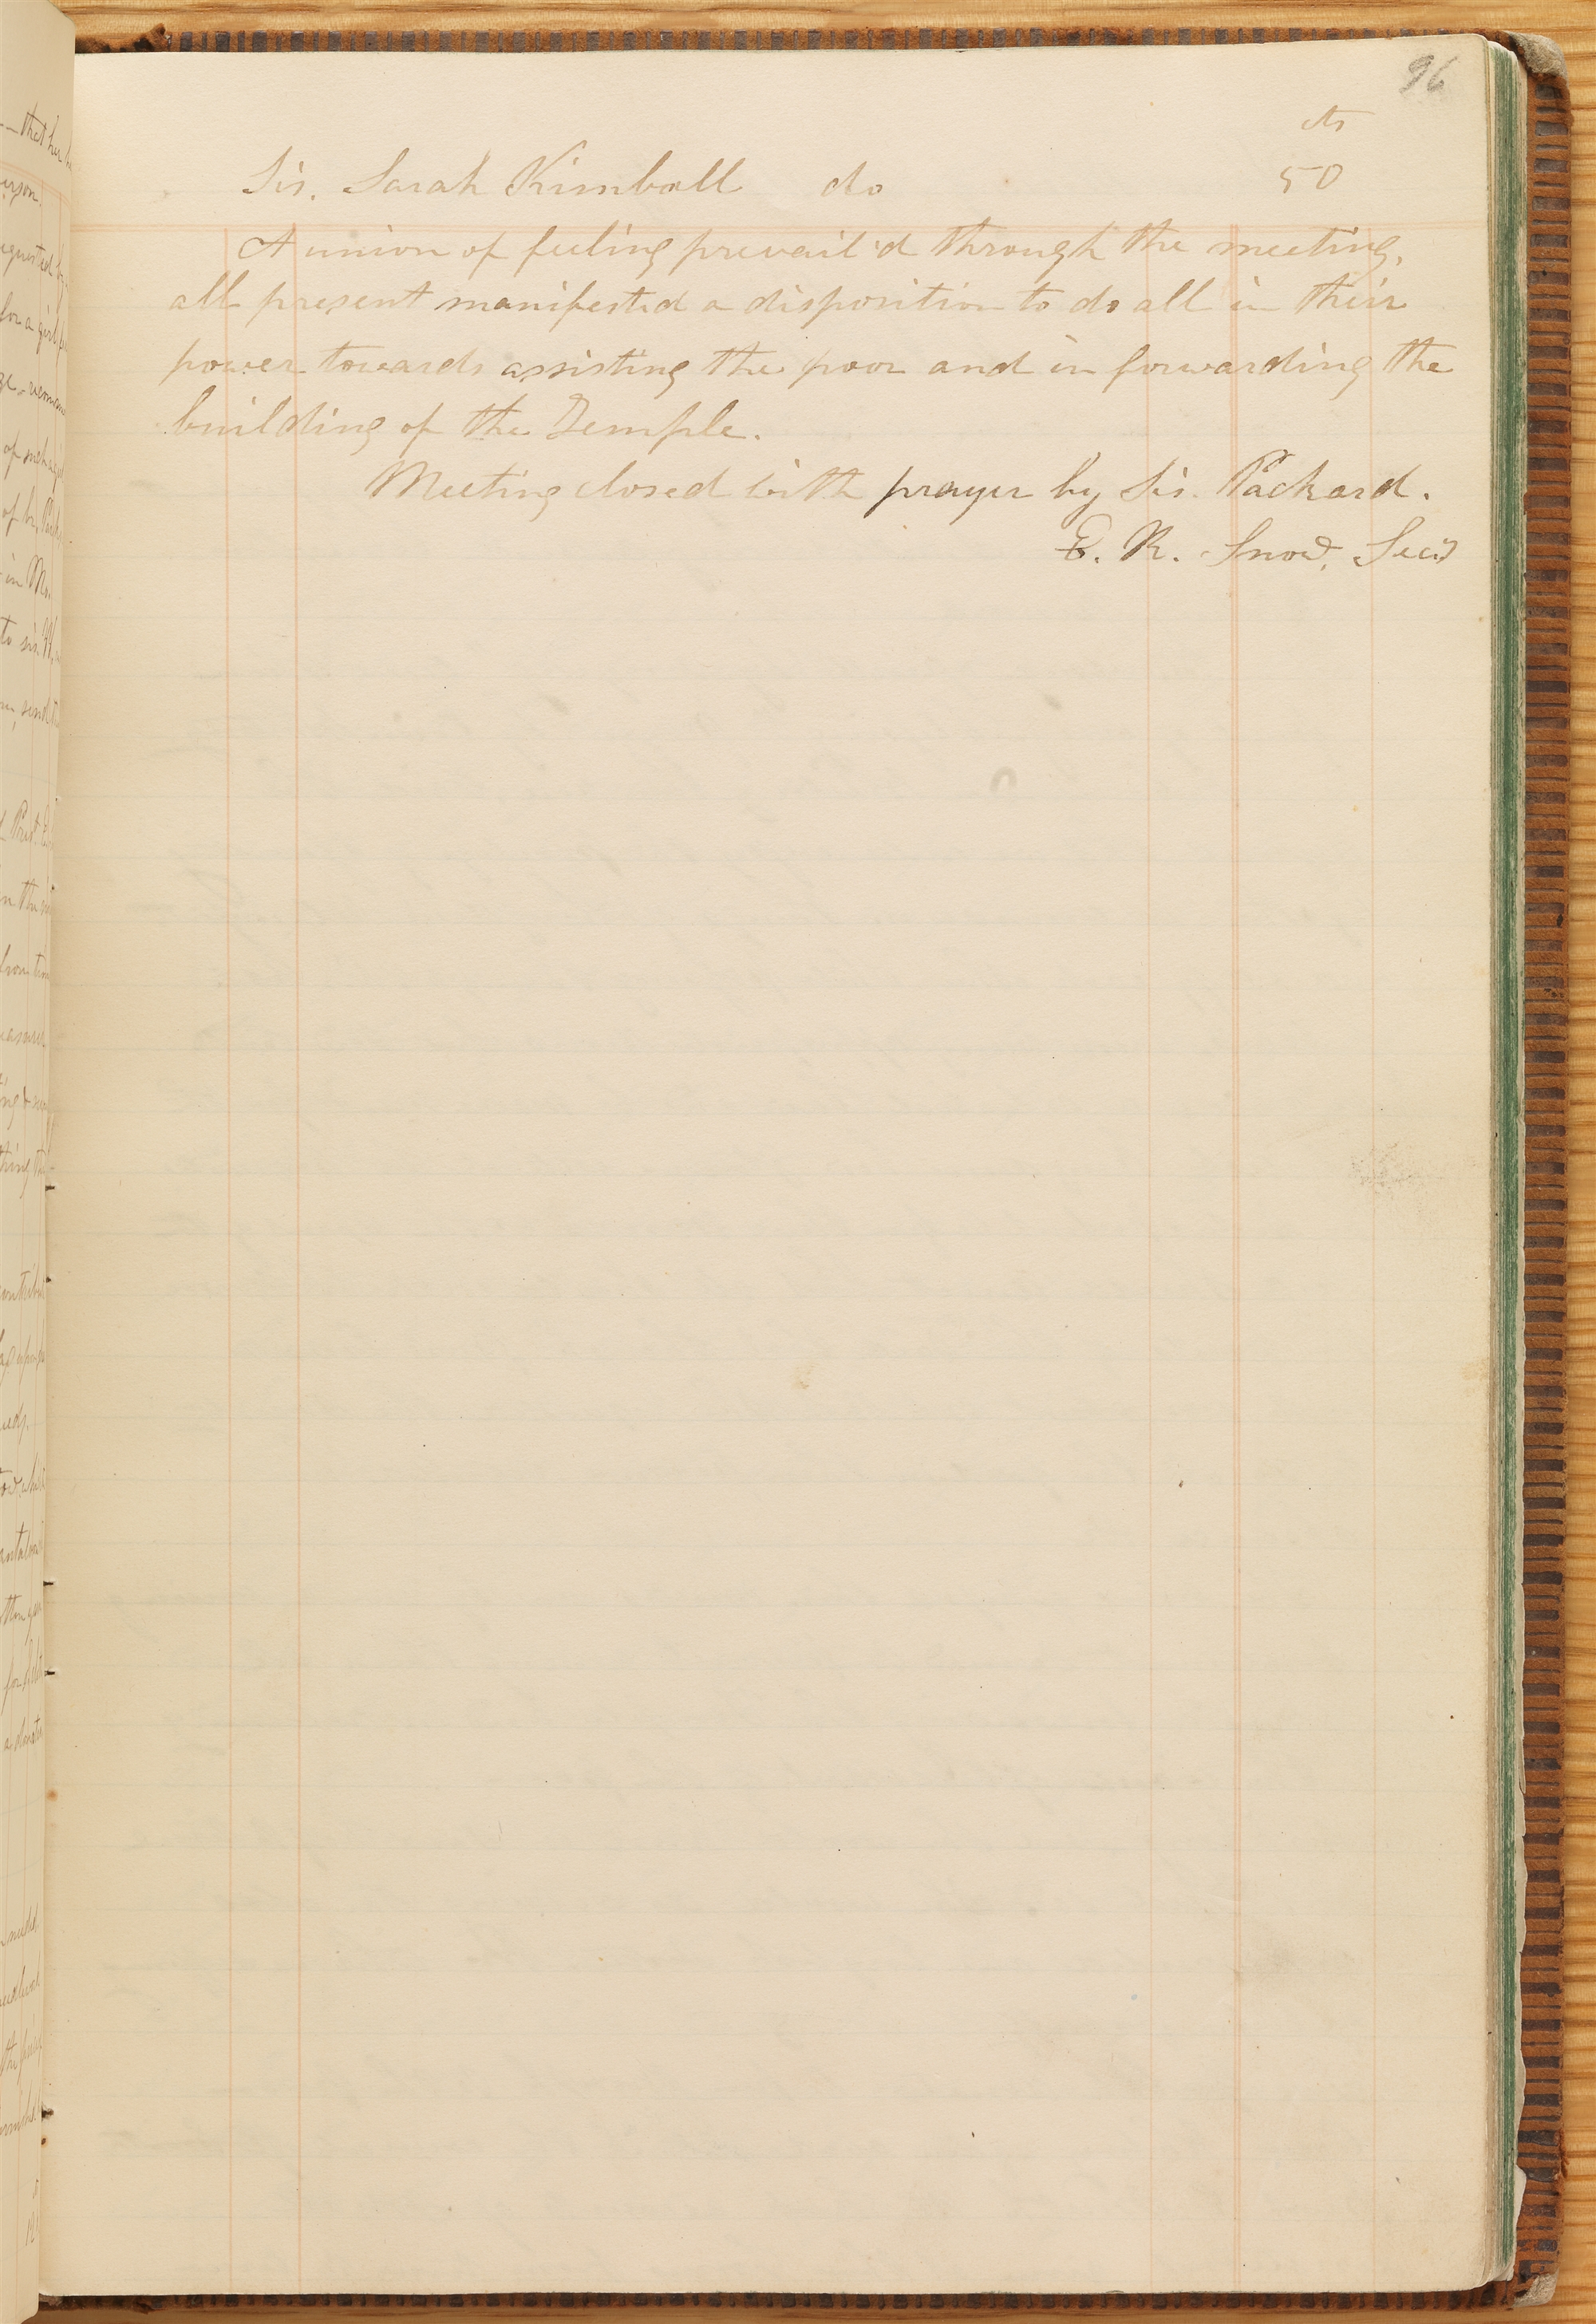 96
cts
Sis. Sarah Kimball do 50
A union of feeling prevail'd through the meeting,
all present manifested a disposition to do all in their
power towards assisting the poor and in forwarding the
building of the Temple.
Meeting closed with prayer by Sis. Packard.
E. R. Snow, Sec'y